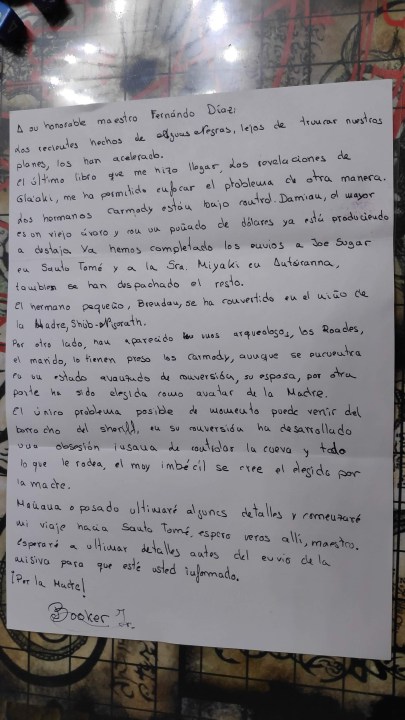 A su honorable maestro Fernándo Díaz:
Los recientes hechos de Aguas Negras, lejos de truncar nuestros
planes, los han acelerado.
El último libro que me hizo llegar, Las revelaciones de
Glaaki, me ha permitido enfocar el problema de otra manera.
Los hermanos Carmody están bajo control. Damian, el mayor
es un viejo avaro y con un puñado de dólares ya está produciendo
a destajo. Ya hemos completado los envíos a Joe Sugar
en Santo Tomé y a la Sra. Miyaki en
tambien se han despachado el resto.
El hermano pequeño, Brendan, se ha convertido en el niño de
la Madre, Shub-Niggurath.
Por otro lado, han aparecido unos arqueologos, los Roades,
el marido, lo tienen preso los Carmody, aunque se encuentra
en un estado avanzado de conversión, su esposa, por otra
parte ha sido elegida como avatar de la Madre.
El único problema posible de momento puede venir del
borracho del sheriff, en su conversión ha desarrollado
una obsesión insana de controlar la cueva y todo
lo que le rodea, el muy imbécil se cree el elegido por
la madre.
Mañana o pasado ultimaré algunos detalles y comenzaré
mi viaje hacia Santo Tomé, espero veros allí, maestro.
Esperaré a ultimar detalles antes del envio de la
misiva para que esté usted informado.
¡Por la Madre!
Booker Jr.